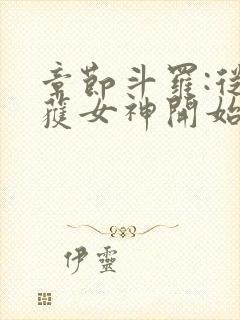 章節斗羅:從
獲女神開始
伊靈